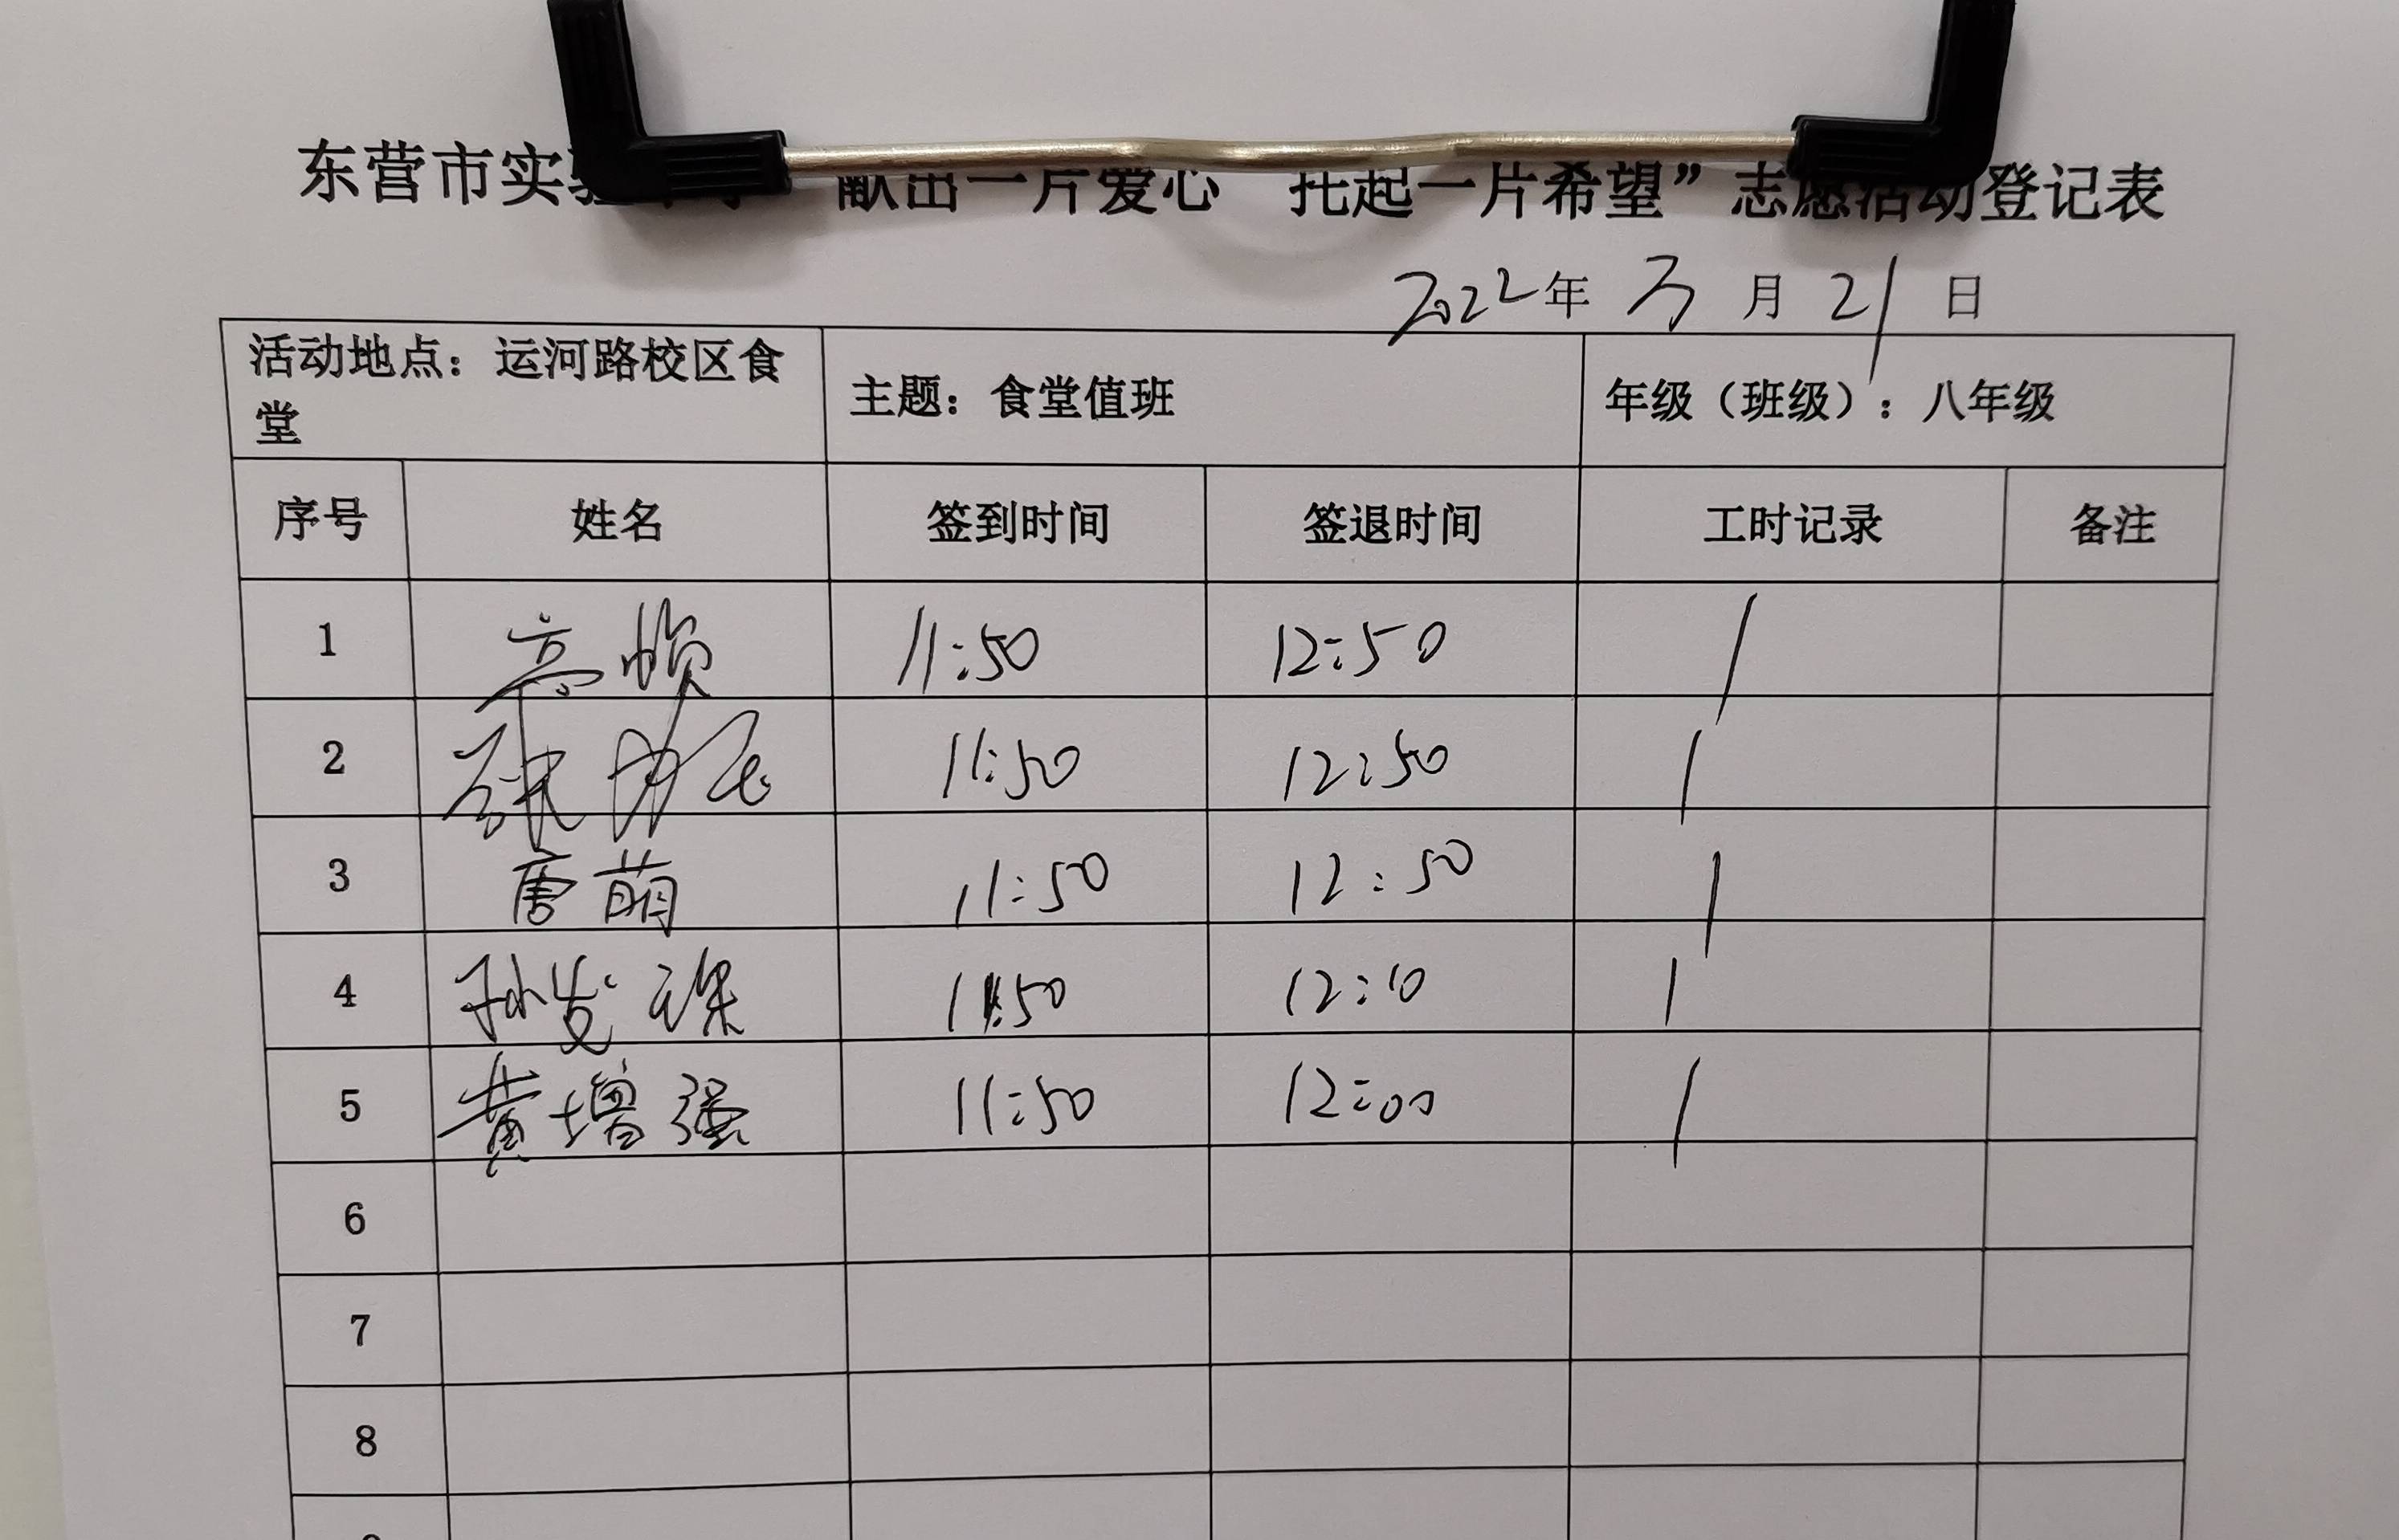 东营市实验中学“献出一片爱心 托起一片希望”志愿活动登记表
2022年 3 月 21 日
活动地点：运河路校区食堂 主题：食堂值班 年级（班级）：八年级
序号 姓名 签到时间 签退时间 工时记录 备注
1 11:50 12:50 1
2 11:50 12:50 1
3 唐萌 11:50 12:50 1
4 孙 11:50 12:10 1
5 黄增强 11:50 12:00 1
6
7
8